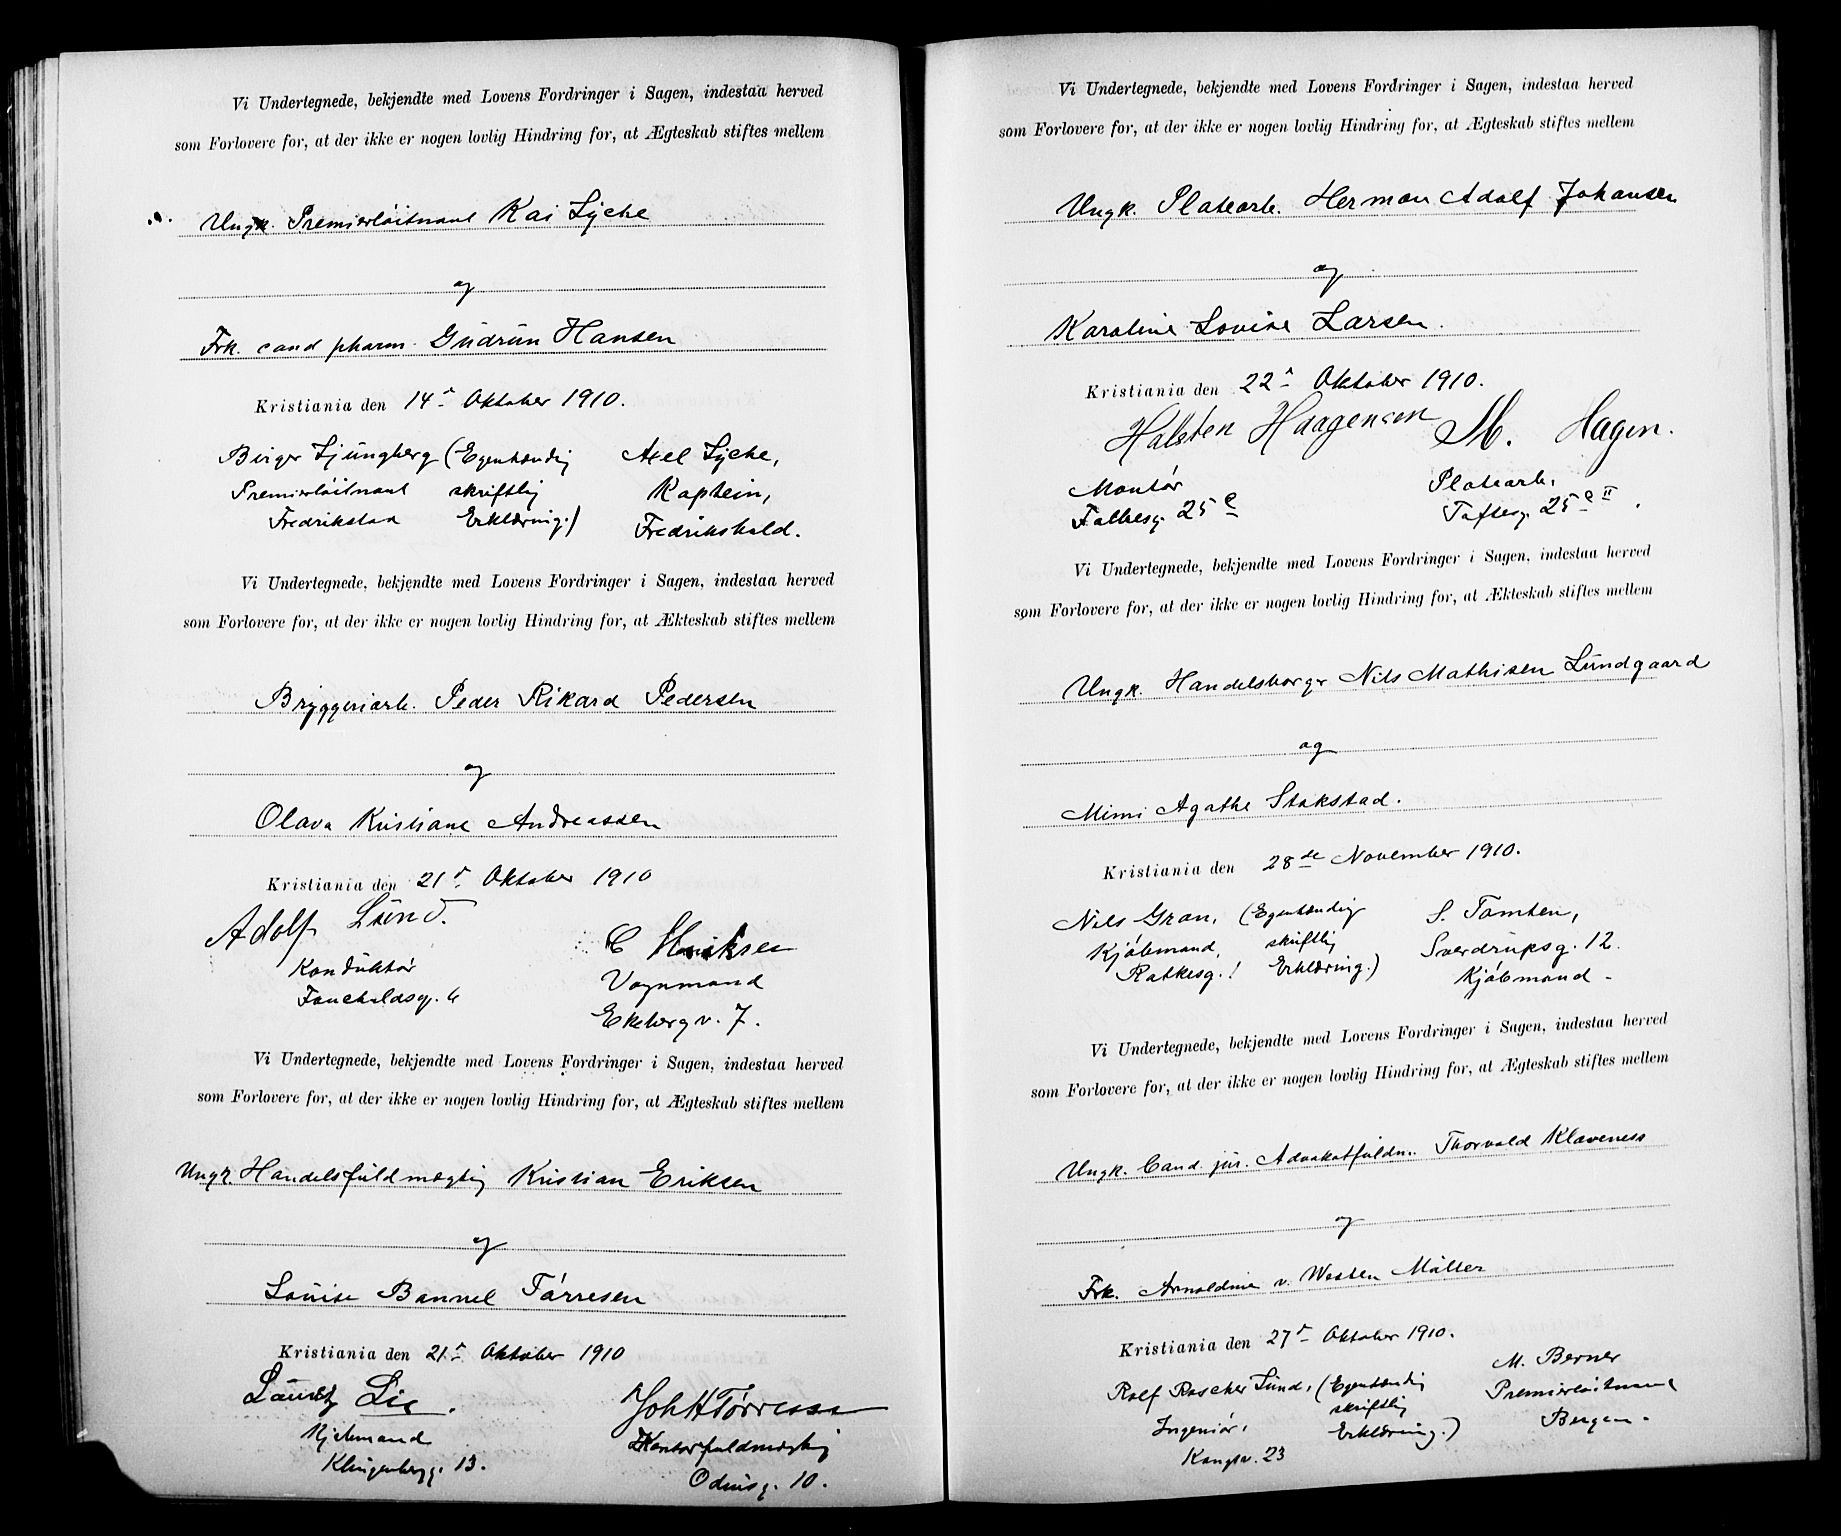 Vi Undertegnede, bekjendte med Lovens Fordringer i Sagen, indestaa herved
som Forlovere for, at der ikke er nogen lovlig Hindring for, at Ægteskab stiftes mellem
Ungk. Premierløitnant Kai Lyche
og
Frk. cand pharm. Gudrun Hansen
Kristiania den 14de Oktober 1910.
Birger Ljungberg (Egenhændig Axel Lyche,
Premierløitnant skriftlig Kaptein,
Fredrikstad Erklæring.) Fredrikshald.
Vi Undertegnede, bekjendte med Lovens Fordringer i Sagen, indestaa herved
som Forlovere for, at der ikke er nogen lovlig Hindring for, at Ækteskab stiftes mellem
Bryggeriarb. Peder Rikard Pedersen
og
Olava Kristiane Andreassen
Kristiania den 21de Oktober 1910
Adolf Lund. C Henriksen
Konduktør Vognmand
Fouchaldsg. 6 Ekebergv. 7.
Vi Undertegnede, bekjendte med Lovens Fordringer i Sagen, indestaa herved
som Forlovere for, at der ikke er nogen lovlig Hindring for, at Ægteskab stiftes mellem
Ungk. Handelsfuldmægtig Kristian Eriksen
og
Louise Bannel Tørresen
Kristiania den 21de Oktober 1910
Lauritz Lie. Joh H Tørresen
Kjøbmand Kontorfuldmægtig
Klingenbergg. 13. Odinsg. 10.
Vi Undertegnede, bekjendte med Lovens Fordringer i Sagen, indestaa herved
som Forlovere for, at der ikke er nogen lovlig Hindring for, at Ægteskab stiftes mellem
Ungk. Platearb. Herman Adolf Johansen
og
Karoline Lovise Larsen.
Kristiania den 22de Oktober 1910.
Halsten Haagensen M. Hagen.
Montør Platearb.
Falbesg. 25 c Toftesg. 25 c II.
Vi Undertegnede, bekjendte med Lovens Fordringer i Sagen, indestaa herved
som Forlovere for, at der ikke er nogen lovlig Hindring for, at Ækteskab stiftes mellem
Ungk. Handelsborger Nils Mathisen Lundgaard
og
Mimi Agathe Stokstad.
Kristiania den 28de November 1910.
Nils Gran, (Egenhændig S. Tomten,
Kjøbmand, skriftlig Sverdrupsg. 12.
Ratkesg. 1 Erklæring.) Kjøbmand -
Vi Undertegnede, bekjendte med Lovens Fordringer i Sagen, indestaa herved
som Forlovere for, at der ikke er nogen lovlig Hindring for, at Ægteskab stiftes mellem
Ungk. Cand. jur. Advokatfuldm. Thorvald Klaveness
og
Frk. Arnoldine v. Westen Møller
Kristiania den 27de Oktober 1910.
Rolf Roscher Lund, (Egenhændig M. Berner
Ingeniør, skriftlig Premierløitnant
Kongsv. 23 Erklæring.) Bergen.